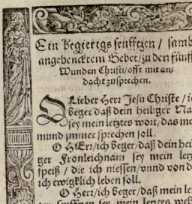 Ein begierigs seufftzen / samb
angehencktem Gebet / zu den fünff
Wunden Christi / offt mit an-
dacht zusprechen.
O Lieber Herr Jesu Christe / ic
beger daß dein heiliger Na
sey mein letztes wort, das me
mund immer sprechen soll.
O HErr / ich beger / daß dein hei
ger Fronleichnam sey mein letz
speiß / die ich niessen / unnd von de
ich ewigklich leben soll.
O Herr / ich beger / daß mein le